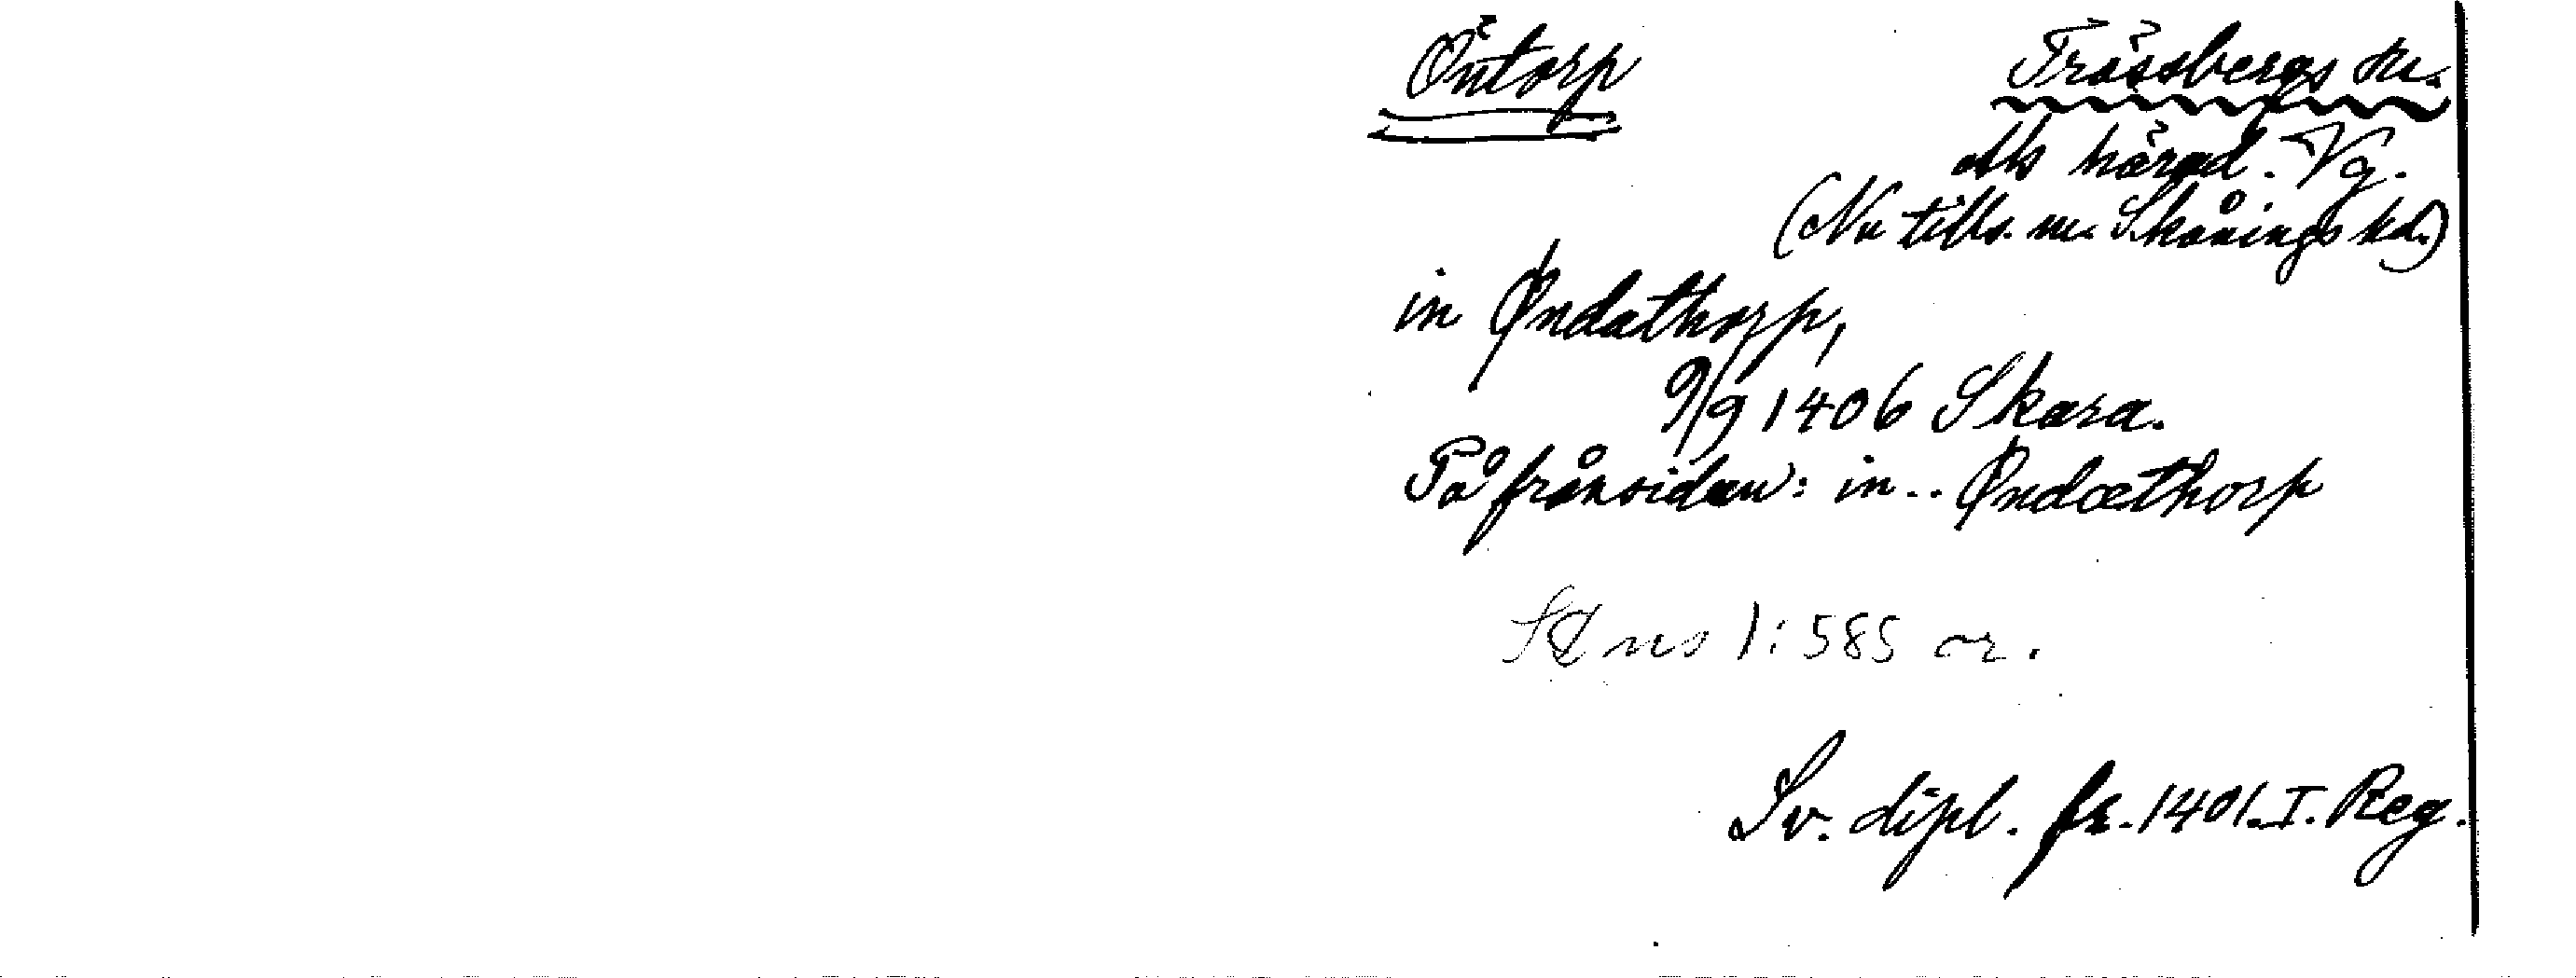 Öntorp
Trässbergs sn.
Als härad. Vg.
(Nu tills. m. Skånings hd.)
in Øndathorp,
9/9 1406 Skara.
På frånsidan: in .. Øndæthorp
SD ns 1:585 or.
Sv. dipl. fr. 1401. I. Reg.